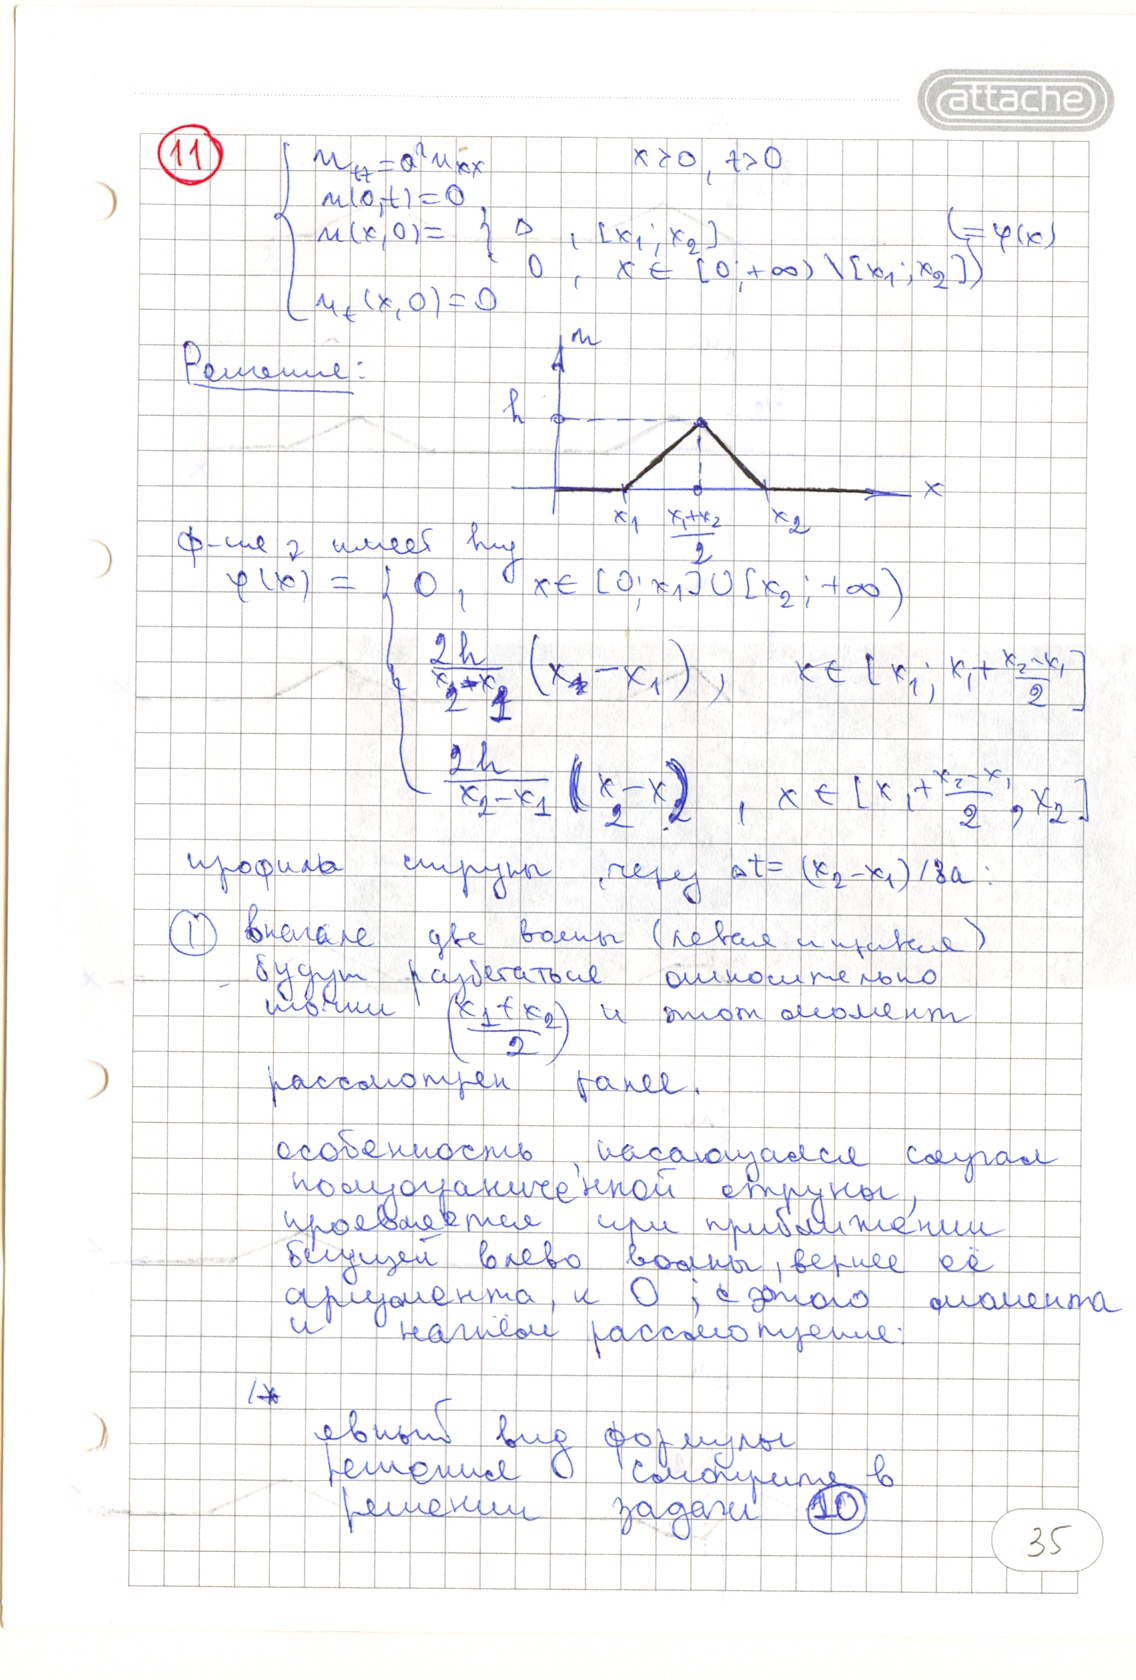 attache
11
u_tt = a² u_xx    x>0, t>0
u(0,t)=0
u(x,0)= { Δ , [x₁; x₂]    (= φ(x)
0 , x ∈ [0; +∞) \ [x₁; x₂])
u_t(x,0)=0
Решение:
u
h
x
x₁ (x₁+x₂)/2 x₂
ф-ие имеет вид
φ(x) = { 0 , x ∈ [0; x₁] ∪ [x₂; +∞)
(x - x₁) , x ∈ [x₁; x₁ + (x₂-x₁)/2]
2h/(x₂-x₁) (x₂-x) , x ∈ [x₁ + (x₂-x₁)/2 ; x₂]
профиль струны через Δt = (x₂-x₁)/8a :
1 вначале две волны (левая и правая)
будут разбегаться относительно
точки ((x₁+x₂)/2) и этот момент
рассмотрен ранее.
особенность, касающаяся случая
полуограниченной струны,
проявляется при приближении
бегущей влево волны, вернее её
аргумента, к 0 ; с этого момента
и начнём рассмотрение:
/*
явный вид формулы
решения смотрите в
решении задачи 10
35